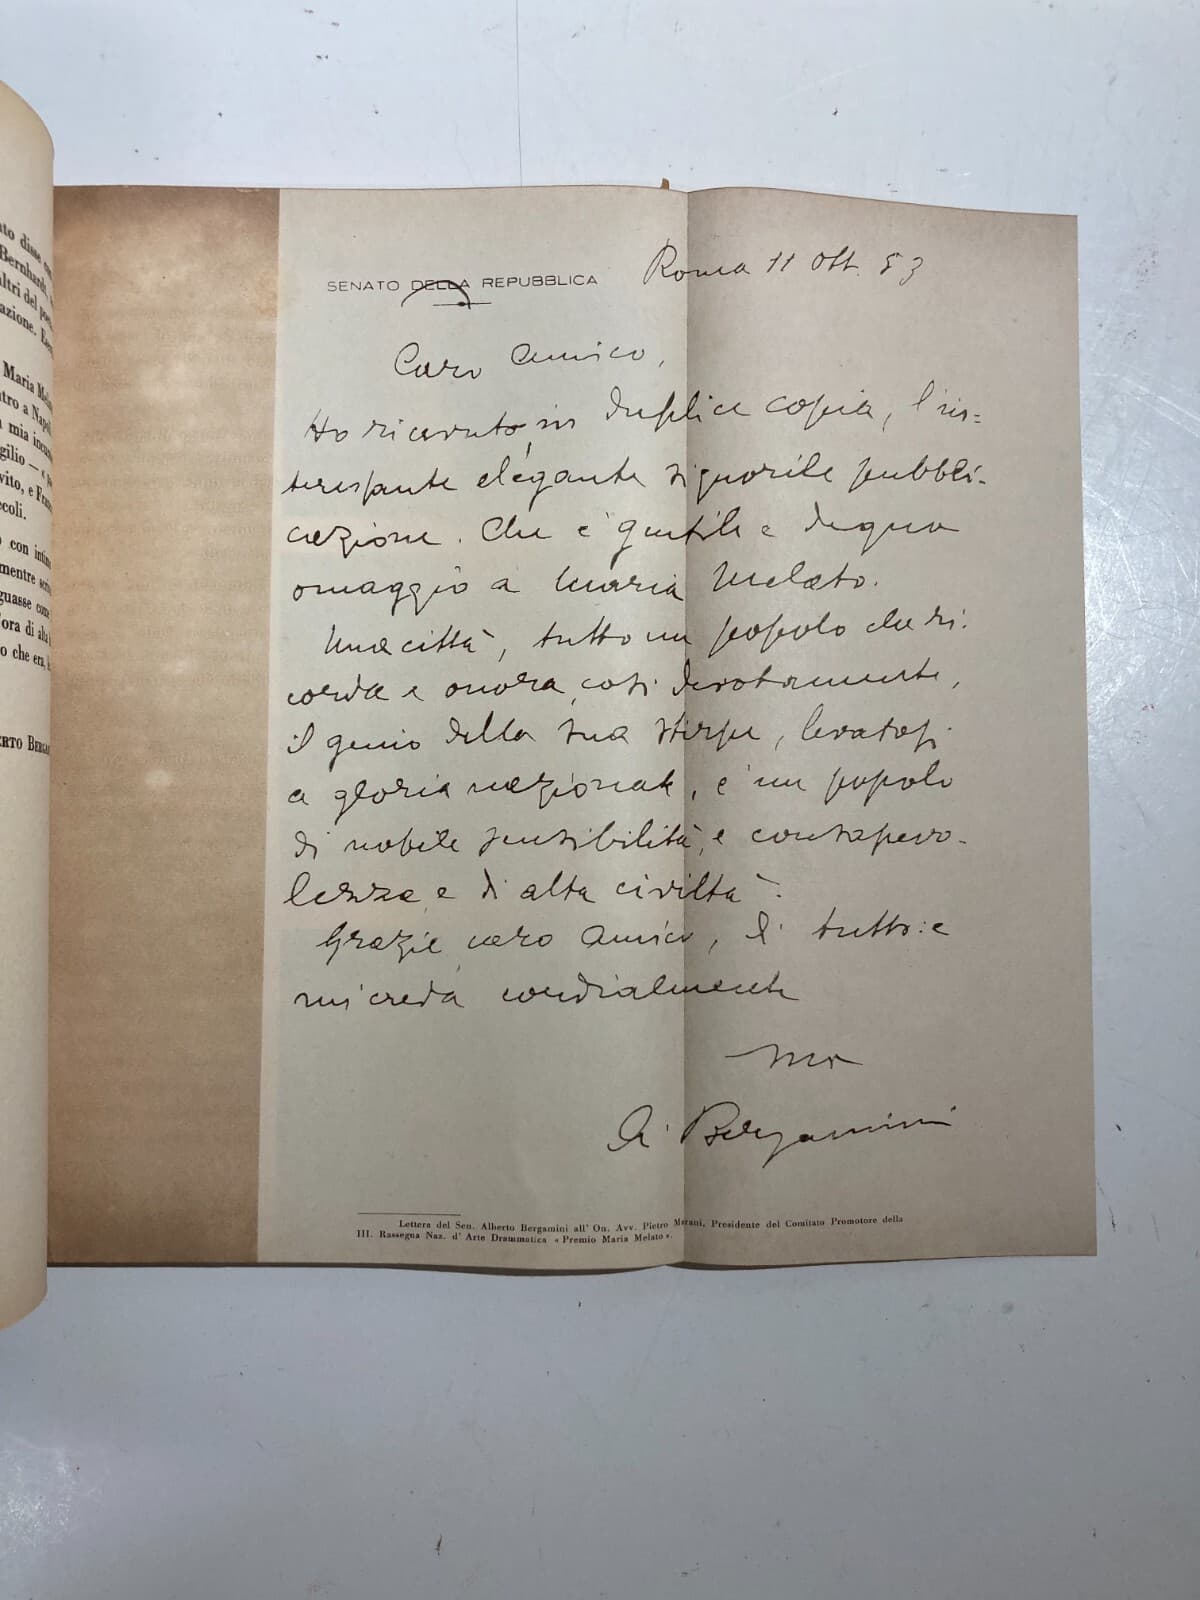 ato disse
Bernhardt,
altri del
azione.
Maria
tro a Napoli
mia
gilio —
vito, e
ecoli.
con
mentre
guasse come
'ora di alta
o che era,
ERTO
SENATO DELLA REPUBBLICA
Roma 11 Ott. 53
Caro Amico,
Ho ricevuto, in duplice copia, l'in=
teressante elegante signorile pubbli-
cazione. Che è gentile e degno
omaggio a Maria Melato.
Una città, tutto un popolo che ri-
corda e onora, così devotamente,
il genio della sua stirpe, levatosi
a gloria nazionale, è un popolo
di nobile sensibilità, e consapevo-
lezza, e di alta civiltà.
Grazie, caro Amico, di tutto: e
mi creda cordialmente
suo
A. Bergamini
Lettera del Sen. Alberto Bergamini all' On. Avv. Pietro Marani, Presidente del Comitato Promotore della
III. Rassegna Naz. d' Arte Drammatica « Premio Maria Melato ».